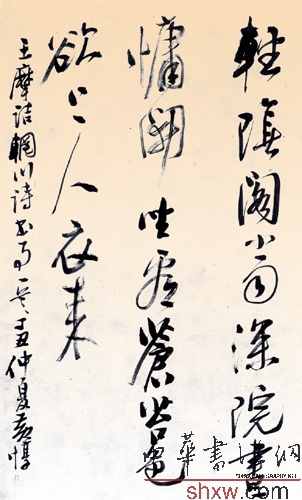 輕陰閣小雨深院晝
慵開坐看蒼苔色
欲上人衣来
王摩詰輞川詩書事一首丁丑仲夏黄惇
shxw.com